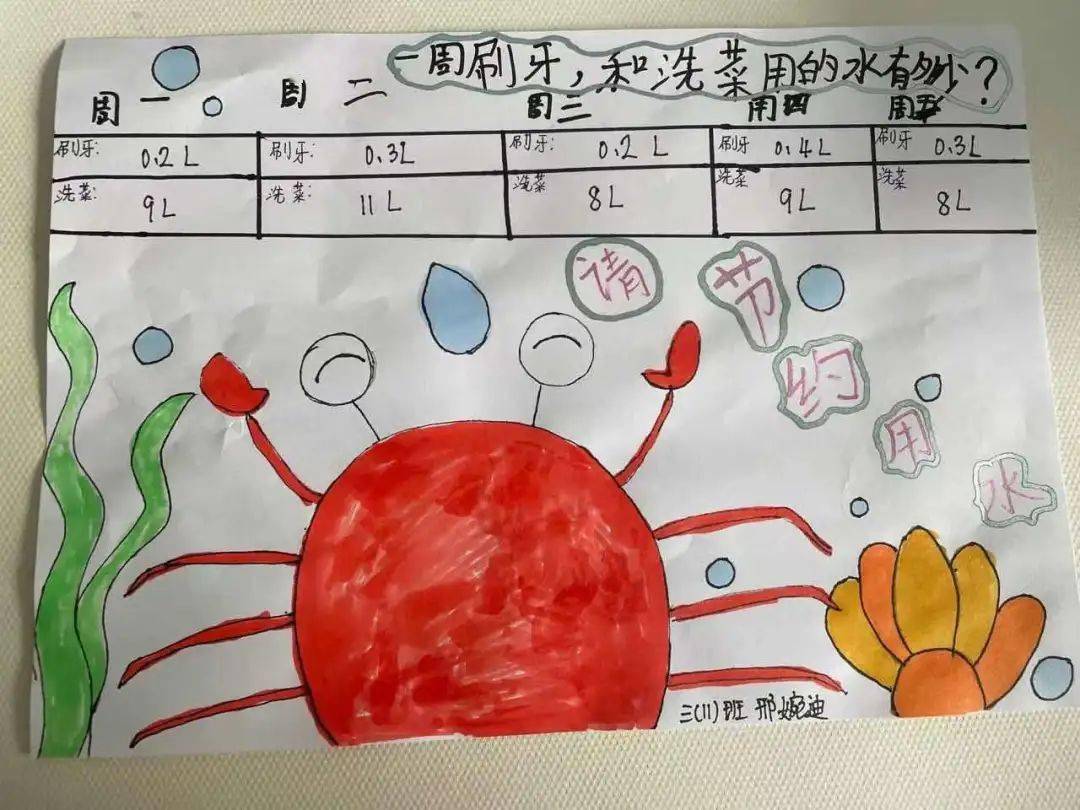 一周刷牙,和洗菜用的水有多少?
周一 周二 周三 周四 周五
刷牙: 0.2L 刷牙: 0.3L 刷牙: 0.2L 刷牙 0.4L 刷牙 0.3L
洗菜: 9L 洗菜: 11L 洗菜 8L 洗菜 9L 洗菜 8L
请节约用水
三(11)班 邢婉迪